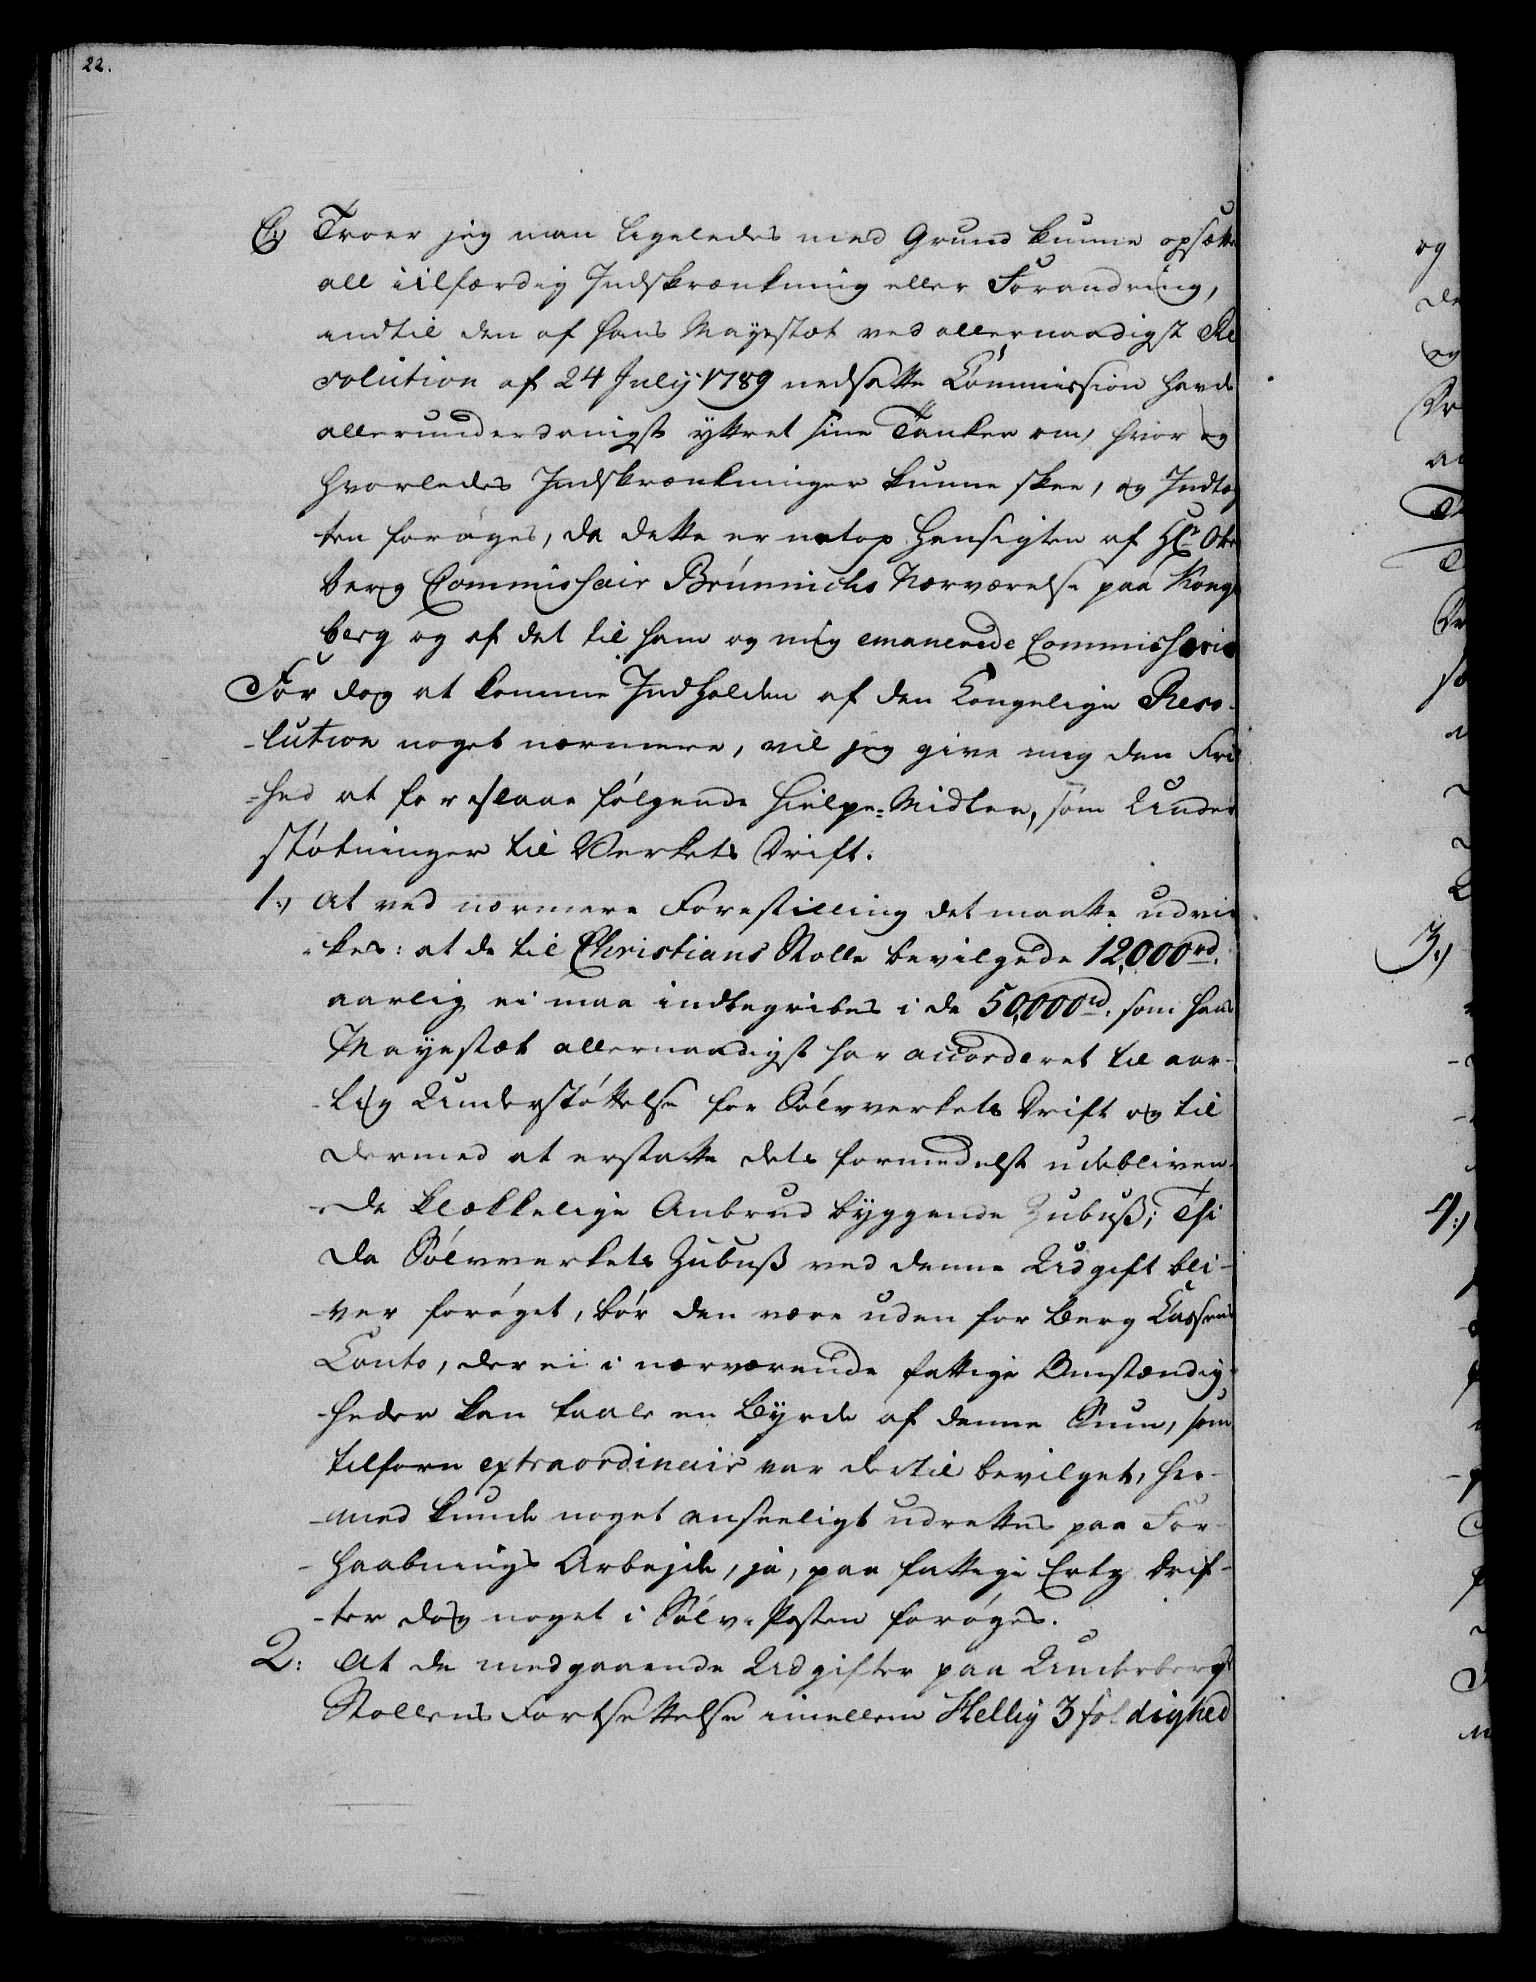 22.
E:) Troer jeg man ligeledes med Grund kunne opsætte
all iilfærdig Indskrænkning eller Forandring,
indtil den af Hans Mayestæt ved allernaadigst Re
solution af 24 July 1789 nedsatte Commission havde
allerunderdanigst yttret sine Tanker om, hvor og
hvorledes Indskrænkninger kunne skee, og Indtæg
ten forøges, da dette er netop Hensigten af Hr. Ober
berg Commissair Brünnichs Nærværelse paa Kongs
berg og af det til ham og mig emanerede Commissorie
For dog at komme Indholden af den Kongelige Reso-
-lution noget nærmere, vil jeg give mig den Fri
-hed at foreslaae følgende Hielpe-Midler, som Under
støtninger til Verkets Drift.
1:) At ved nærmere Forestilling det maatte udvir
-kes: at de til Christians Stolle bevilgede 12,000 rd.
aarlig ei maa indbegribes i de 50,000 rd. som Hans
Mayestæt allernaadigst har accorderet til aar-
-lig Understøttelse for Sølvverkets Drift og til
dermed at erstatte dets formedelst udebliven-
-de klækkelige Anbrud byggende Zubuß; Thi
da Sølvverkets Zubuß ved denne Udgift bli-
-ver forøget, bør den være uden for Berg Cassens
Conto, der ei i nærværende fattige Omstændig-
-heder kan taale en Byrde af denne Sum, som
tilforn extraordinair var dertil bevilget, her-
-med kunde noget anseeligt udrettes paa For-
-haabnings Arbejde, ja, paa fattige Ertz Drif-
-ter dog noget i Sølv-Posten forøges.
2: At de medgaaende Udgifter paa Underbergs
Stollens Fortsettelse imellem Hellig 3foldighed
og
de
og
3:)
4:)